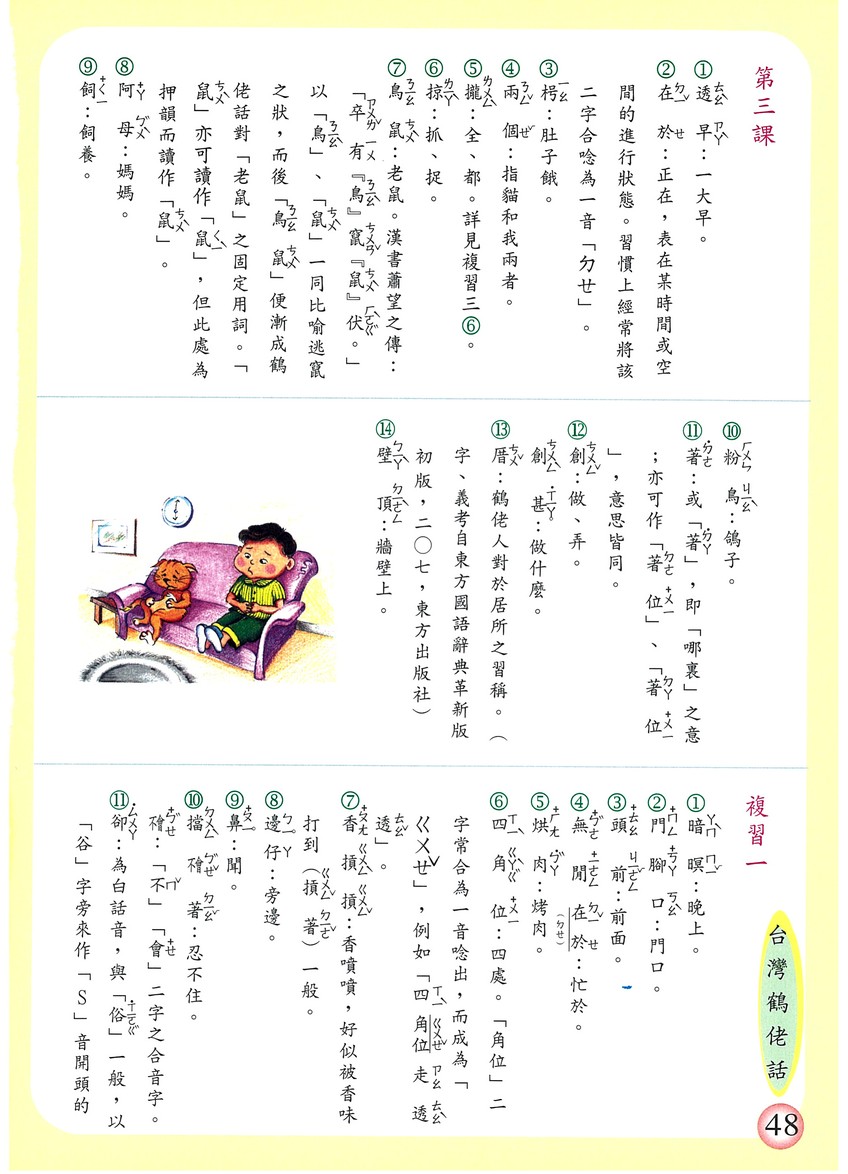 第三課
①透早：一大早。
②在於：正在，表在某時間或空
間的進行狀態。習慣上經常將該
二字合唸為一音「ㄉㄝ」。
③枵：肚子餓。
④兩個：指貓和我兩者。
⑤攏：全、都。詳見複習三⑥。
⑥掠：抓、捉。
⑦鳥鼠：老鼠。漢書蕭望之傳：
「卒有『鳥』竄『鼠』伏。」
以「鳥」、「鼠」一同比喻逃竄
之狀，而後「鳥鼠」便漸成鶴
佬話對「老鼠」之固定用詞。「
鼠」亦可讀作「鼠」，但此處為
押韻而讀作「鼠」。
⑧阿母：媽媽。
⑨飼：飼養。
⑩粉鳥：鴿子。
⑪著：或「著」，即「哪裏」之意
；亦可作「著位」、「著位
」，意思皆同。
⑫創：做、弄。
創甚：做什麼。
⑬厝：鶴佬人對於居所之習稱。（
字、義考自東方國語辭典革新版
初版，二〇七，東方出版社）
⑭壁頂：牆壁上。
複習一
①暗暝：晚上。
②門腳口：門口。
③頭前：前面。
④無閒在於：忙於。
（ㄉㄝ）
⑤烘肉：烤肉。
⑥四角位：四處。「角位」二
字常合為一音唸出，而成為「
ㄍㄨㄝˋ」，例如「四角位走透
透」。
⑦香摃摃：香噴噴，好似被香味
打到（摃著）一般。
⑧邊仔：旁邊。
⑨鼻：聞。
⑩擋襘著：忍不住。
襘：「不」「會」二字之合音字。
⑪卻：為白話音，與「俗」一般，以
「谷」字旁來作「S」音開頭的
台灣鶴佬話
48